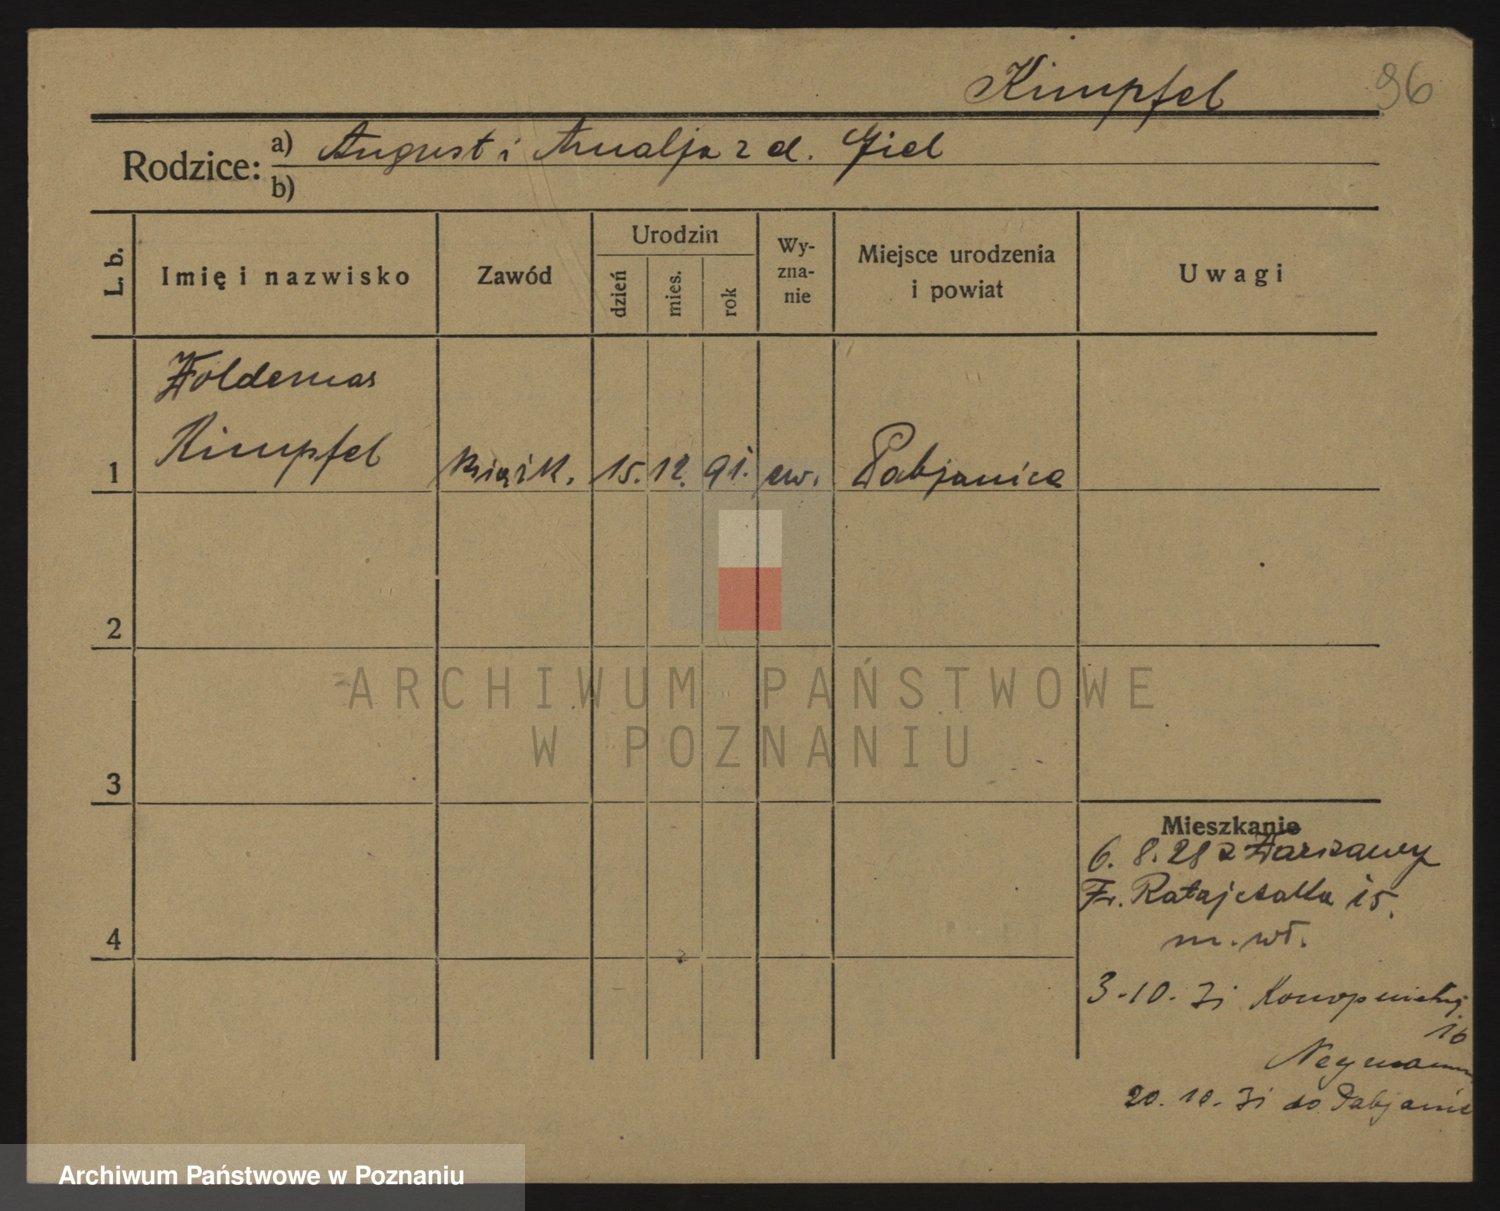 Kimpfel
96
Rodzice: a) August i Amalja z d. Giel
b)
L. b.
Imię i nazwisko
Zawód
Urodzin
dzień
mies.
rok
Wy-
zna-
nie
Miejsce urodzenia
i powiat
Uwagi
Woldemar
Kimpfel
1
15. 12. 91. ew. Pabjanice
2
3
4
Mieszkanie
6. 8. 28 z Warszawy
Fr. Ratajczaka 15.
m. wł.
3-10-31 Konopnickiej
16
Neymann
20. 10. 31 do Pabjanic
ARCHIWUM PAŃSTWOWE
W POZNANIU
Archiwum Państwowe w Poznaniu